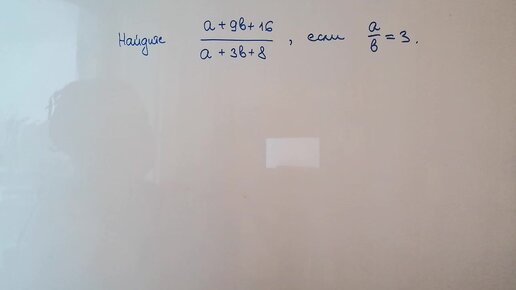 Найдите (a+9b+16)/(a+3b+8), если a/b=3.